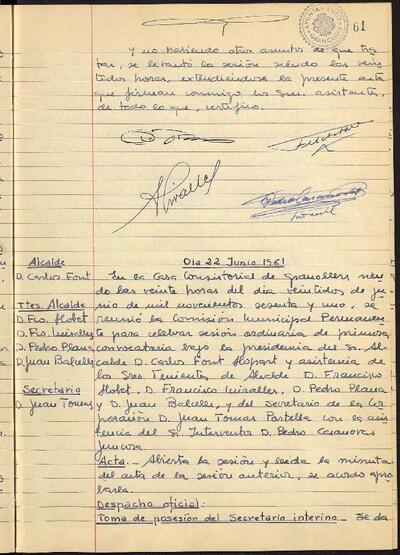 61
y no habiendo otros asuntos de que tra-
tar, se levantó la sesión siendo las vein-
tidos horas, extendiendose la presente acta
que firman conmigo los Sres. asistentes,
de todo lo que, certifico.
Alcalde
Dia 22 Junio 1961
D. Carlos Font
En la Casa Consistorial de Granollers sien-
do las veinte horas del dia veintidos de ju-
Ttes. Alcalde
nio de mil novecientos sesenta y uno, se
D. Fco. Llobet
reunió la Comisión Municipal Permanen-
D. Fco. Miralles
te para celebrar sesión ordinaria de primera
D. Pedro Plana
convocatoria bajo la presidencia del Sr. Al-
D. Juan Balcells
calde D. Carlos Font Llopart y asistencia de
los Sres Tenientes de Alcalde D. Francisco
Secretario
Llobet, D. Francisco Miralles, D. Pedro Plana
D. Juan Tomas
y D. Juan Balcells, y del Secretario de la Cor-
poración D. Juan Tomas Postella con la asis-
tencia del Sr. Interventor D. Pedro Casanovas
Juncosa.
Acta.- Abierta la sesión y leida la minuta
del acta de la sesión anterior, se acordó apro-
barla.
Despacho oficial:
Toma de posesión del Secretario interino.- Se da